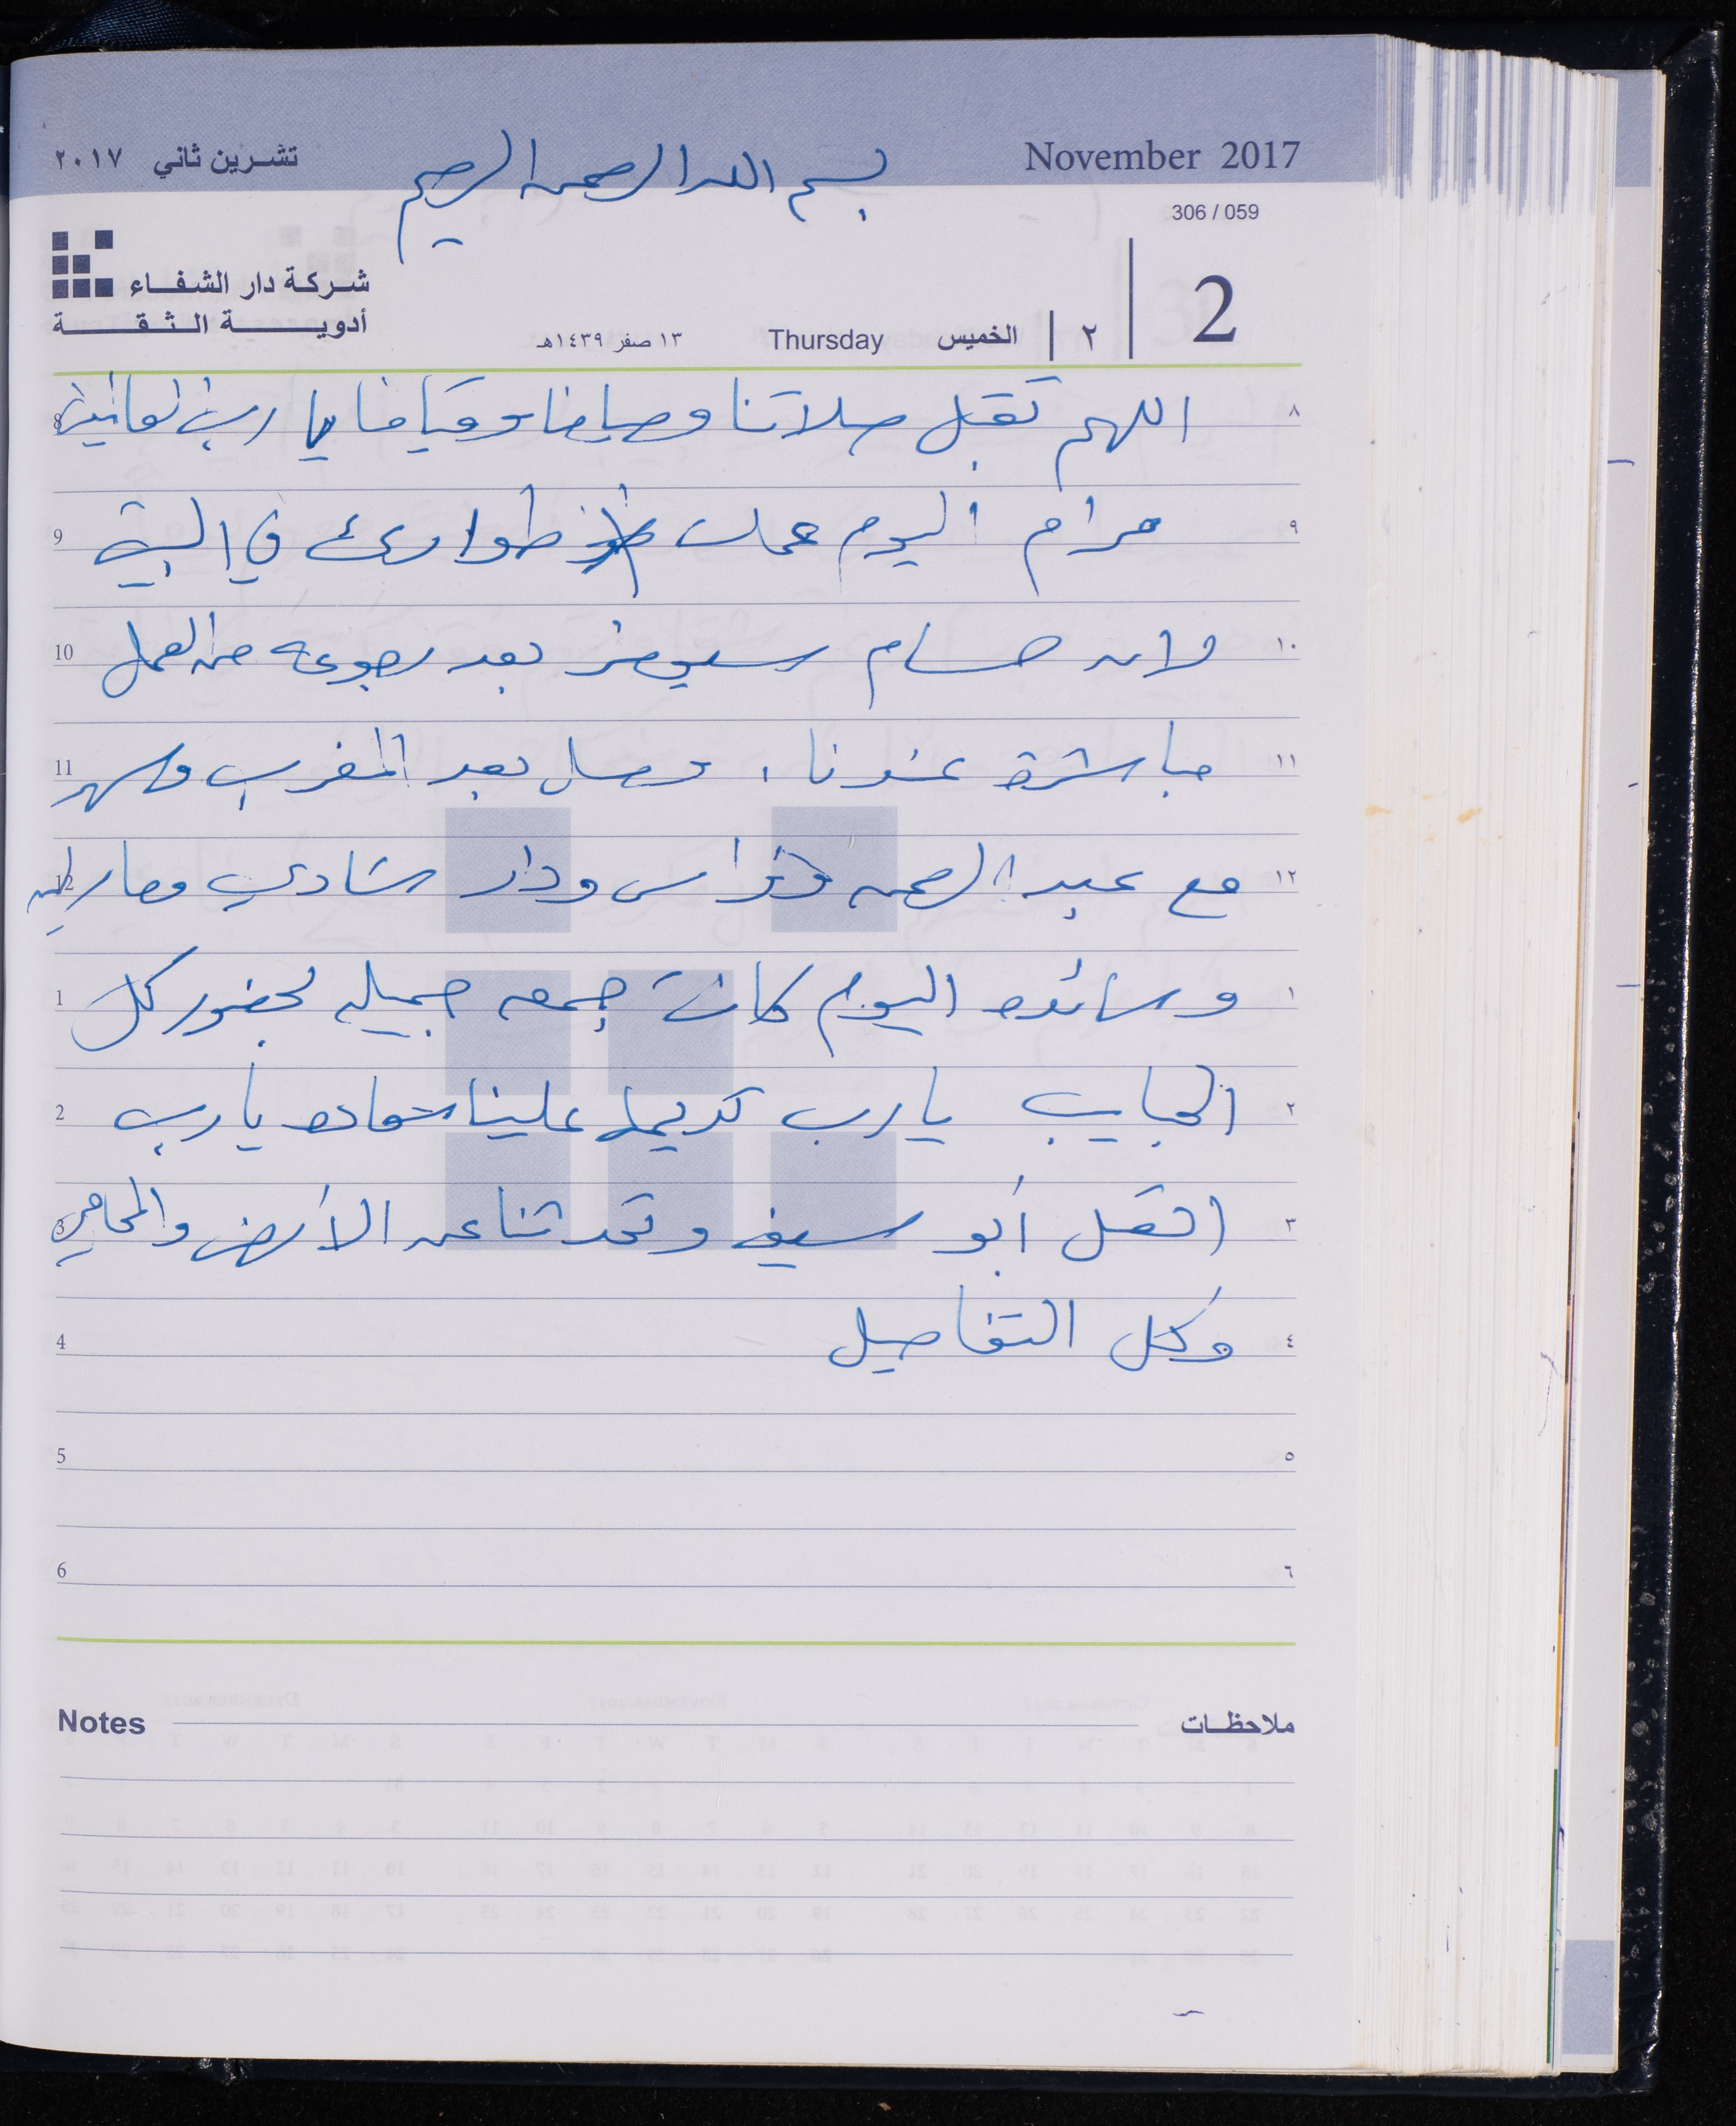 November 2017
تشرين ثاني ٢٠١٧
بسم الله الرحمن الرحيم
306 / 059
شركة دار الشفاء
أدوية الثقة
2 | ٢ | الخميس Thursday ١٣ صفر ١٤٣٩هـ
٨ اللهم تقبل صلاتنا وصيامنا وقيامنا يا رب العالمين 8
٩ مرام اليوم عملت طوارئ في البيت 9
١٠ لانه حسام سيحضر بعد رجوعه من العمل 10
١١ مباشرة عندنا، وصل بعد المغرب وسهر 11
١٢ مع عبد الرحمن وفراس ودار شادي 12
١ وسائده اليوم كانت جمعه جميله لحضور كل 1
٢ الحبايب يارب تديمها علينا يارب 2
٣ اتصل أبو سيف وتحدثنا عن الأرض والمحامي 3
٤ وكل التفاصيل 4
٥ 5
٦ 6
Notes ملاحظات